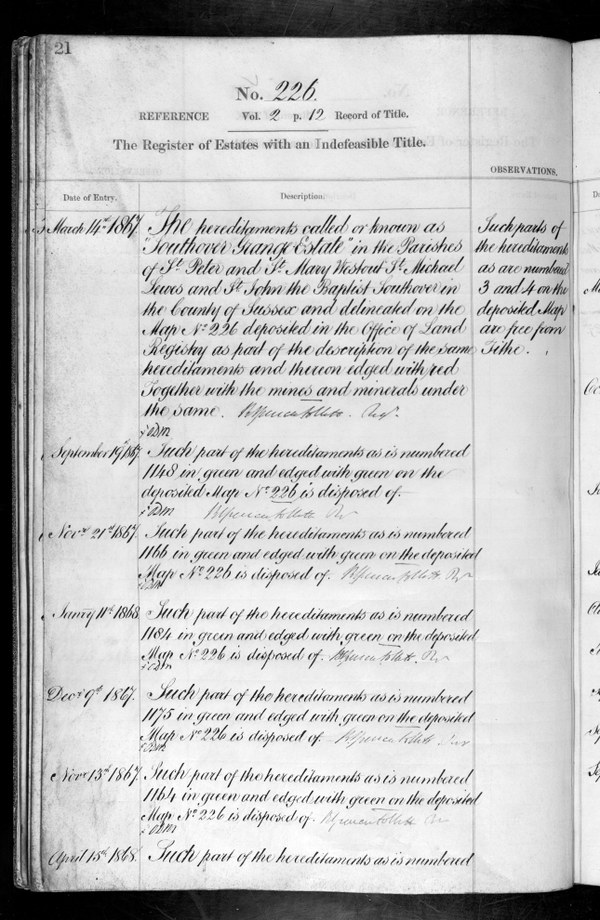 21
No. 226.
REFERENCE Vol. 2 p. 12 Record of Title.
The Register of Estates with an Indefeasible Title.
OBSERVATIONS.
Date of Entry.
Description.
March 14th 1867.
The hereditaments called or known as
"Southover Grange Estate" in the Parishes
of St. Peter and St. Mary Westout St. Michael
Lewes and St. John the Baptist Southover in
the County of Sussex and delineated on the
Map No. 226 deposited in the Office of Land
Registry as part of the description of the same
hereditaments and thereon edged with red
Together with the mines and minerals under
the same.
Such parts of
the hereditaments
as are numbered
3 and 4 on the
deposited Map
are free from
Tithe.
September 19th 1867.
Such part of the hereditaments as is numbered
1148 in green and edged with green on the
deposited Map No. 226 is disposed of.
Novr. 21st 1867.
Such part of the hereditaments as is numbered
1166 in green and edged with green on the deposited
Map No. 226 is disposed of.
Janry 11th 1868.
Such part of the hereditaments as is numbered
1184 in green and edged with green on the deposited
Map No. 226 is disposed of.
Decr. 9th 1867.
Such part of the hereditaments as is numbered
1175 in green and edged with green on the deposited
Map No. 226 is disposed of.
Novr 13th 1867.
Such part of the hereditaments as is numbered
1164 in green and edged with green on the deposited
Map No. 226 is disposed of.
April 15th 1868.
Such part of the hereditaments as is numbered